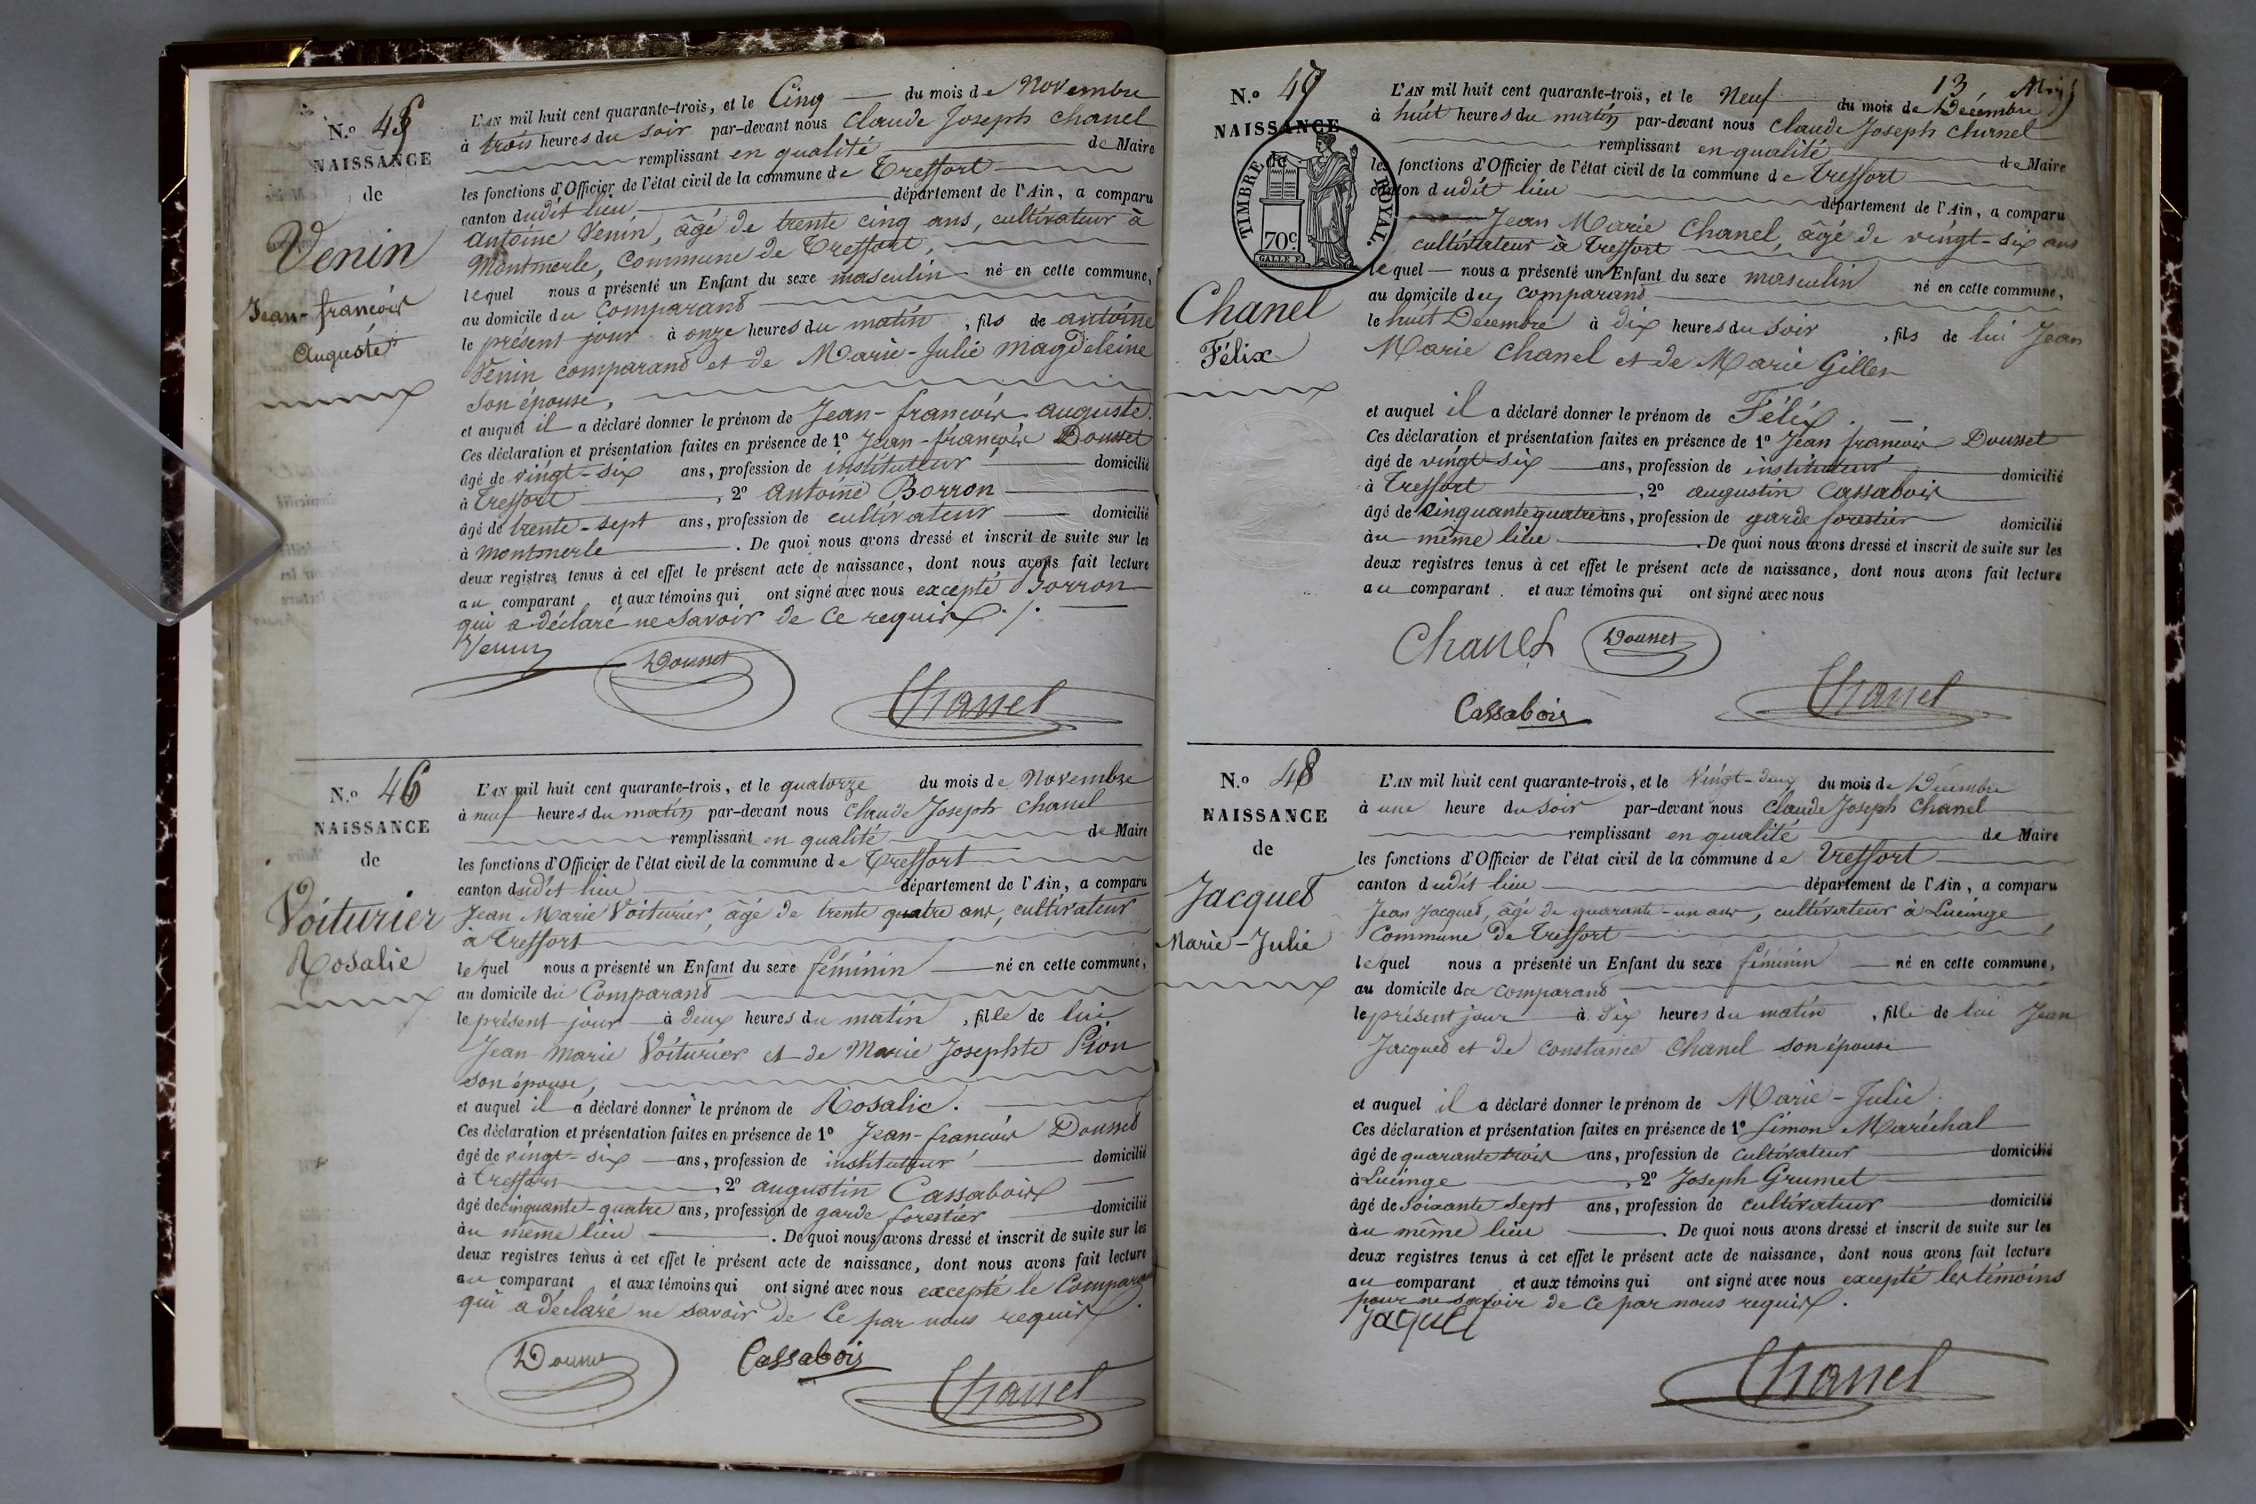 N.o 45
NAISSANCE
de
Venin
Jean-françois
Auguste
L'AN mil huit cent quarante-trois, et le Cinq du mois de Novembre
à trois heures du soir par-devant nous Claude Joseph Chanel
remplissant en qualité de Maire
les fonctions d'Officier de l'état civil de la commune de Treffort
canton dudit lieu département de l'Ain, a comparu
Antoine Venin, âgé de trente cinq ans, cultivateur à
Montmerle, Commune de Treffort,
lequel nous a présenté un Enfant du sexe masculin né en cette commune,
au domicile du Comparand
le présent jour à onze heures du matin, fils de antoine
Venin comparand et de Marie-Julie Magdeleine
son épouse,
et auquel il a déclaré donner le prénom de Jean-françois auguste.
Ces déclaration et présentation faites en présence de 1o Jean-françois Dousset
âgé de vingt-six ans, profession de instituteur domicilié
à Treffort, 2o antoine Borron
âgé de trente-sept ans, profession de cultivateur domicilié
à Montmerle. De quoi nous avons dressé et inscrit de suite sur les
deux registres tenus à cet effet le présent acte de naissance, dont nous avons fait lecture
au comparant et aux témoins qui ont signé avec nous excepté Borron
qui a déclaré ne savoir de ce requis ./.
Venin
Dousset
Chanel
N.o 46
NAISSANCE
de
Voiturier
Rosalie
L'AN mil huit cent quarante-trois, et le quatorze du mois de Novembre
à neuf heures du matin par-devant nous Claude Joseph Chanel
remplissant en qualité de Maire
les fonctions d'Officier de l'état civil de la commune de Treffort
canton dudit lieu département de l'Ain, a comparu
Jean Marie Voiturier, âgé de trente quatre ans, cultivateur
à Treffort
lequel nous a présenté un Enfant du sexe féminin né en cette commune,
au domicile du Comparand
le présent jour à deux heures du matin, fille de lui
Jean Marie Voiturier et de Marie Josephte Pion
son épouse,
et auquel il a déclaré donner le prénom de Rosalie.
Ces déclaration et présentation faites en présence de 1o Jean-françois Dousset
âgé de vingt-six ans, profession de instituteur domicilié
à Treffort, 2o augustin Cassabois
âgé de cinquante-quatre ans, profession de garde forestier domicilié
au même lieu. De quoi nous avons dressé et inscrit de suite sur les
deux registres tenus à cet effet le présent acte de naissance, dont nous avons fait lecture
au comparant et aux témoins qui ont signé avec nous excepté le Comparant
qui a déclaré ne savoir de ce par nous requis.
Dousset
Cassabois
Chanel
13
N.o 47
NAISSANCE
de
TIMBRE ROYAL.
70c
GALLE F.
Chanel
Félix
L'AN mil huit cent quarante-trois, et le Neuf du mois de Décembre
à huit heures du matin par-devant nous Claude Joseph Chanel
remplissant en qualité de Maire
les fonctions d'Officier de l'état civil de la commune de Treffort
canton dudit lieu département de l'Ain, a comparu
Jean Marie Chanel, âgé de vingt-six ans
cultivateur à Treffort
lequel nous a présenté un Enfant du sexe masculin né en cette commune,
au domicile du comparand
le huit Décembre à dix heures du soir, fils de lui Jean
Marie Chanel et de Marie Gillen
et auquel il a déclaré donner le prénom de Félix.
Ces déclaration et présentation faites en présence de 1o Jean françois Dousset
âgé de vingt-six ans, profession de instituteur domicilié
à Treffort, 2o augustin Cassabois
âgé de cinquante quatre ans, profession de garde forestier domicilié
au même lieu. De quoi nous avons dressé et inscrit de suite sur les
deux registres tenus à cet effet le présent acte de naissance, dont nous avons fait lecture
au comparant. et aux témoins qui ont signé avec nous
Chanel
Dousset
Cassabois
Chanel
N.o 48
NAISSANCE
de
Jacquet
Marie-Julie
L'AN mil huit cent quarante-trois, et le vingt-deux du mois de Décembre
à une heure du soir par-devant nous Claude Joseph Chanel
remplissant en qualité de Maire
les fonctions d'Officier de l'état civil de la commune de Treffort
canton dudit lieu département de l'Ain, a comparu
Jean Jacquet, âgé de quarante-un ans, cultivateur à Lucinge
Commune de Treffort
lequel nous a présenté un Enfant du sexe féminin né en cette commune,
au domicile du comparand
le présent jour à dix heures du matin, fille de lui Jean
Jacquet et de Constance Chanel son épouse
et auquel il a déclaré donner le prénom de Marie-Julie.
Ces déclaration et présentation faites en présence de 1o Simon Maréchal
âgé de quarante trois ans, profession de cultivateur domicilié
à Lucinge, 2o Joseph Grumet
âgé de soixante sept ans, profession de cultivateur domicilié
au même lieu. De quoi nous avons dressé et inscrit de suite sur les
deux registres tenus à cet effet le présent acte de naissance, dont nous avons fait lecture
au comparant et aux témoins qui ont signé avec nous excepté les témoins
pour ne savoir de ce par nous requis.
Jaquet
Chanel